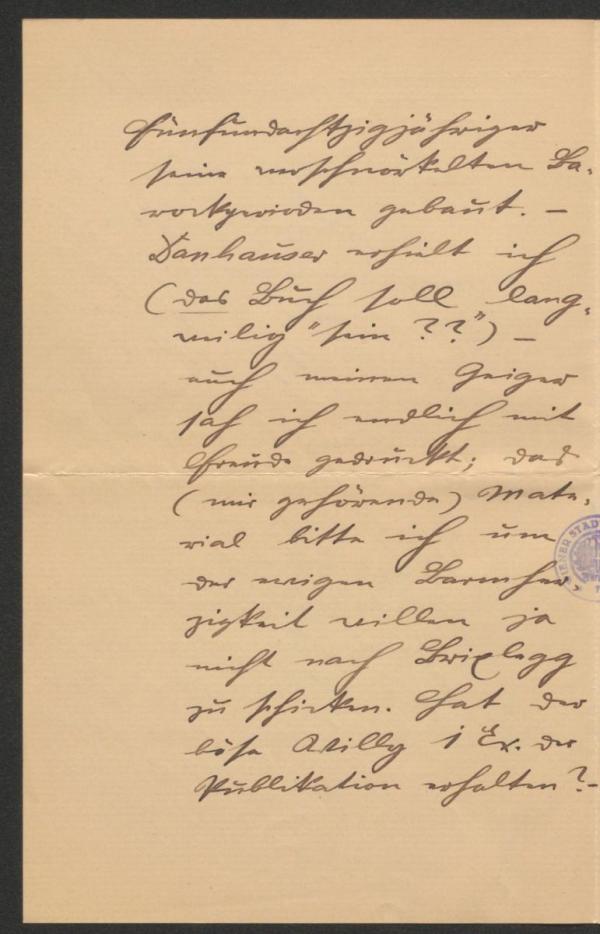 fünfundachtzigjähriger
seine verschnörkelten Ba-
rockgewinden gebaut. –
Danhauser erhielt ich
(das Buch soll „lang-
weilig“ sein ??“) –
auch meinen Geiger
sah ich endlich mit
Freude gedruckt; das
(mir gehörende) Mate-
rial bitte ich um
der ewigen Barmher-
zigkeit willen ja
nicht nach Brixlegg
zu schicken. Hat der
böse Willy 1 Ex. der
Publikation erhalten? –
IENER STAD